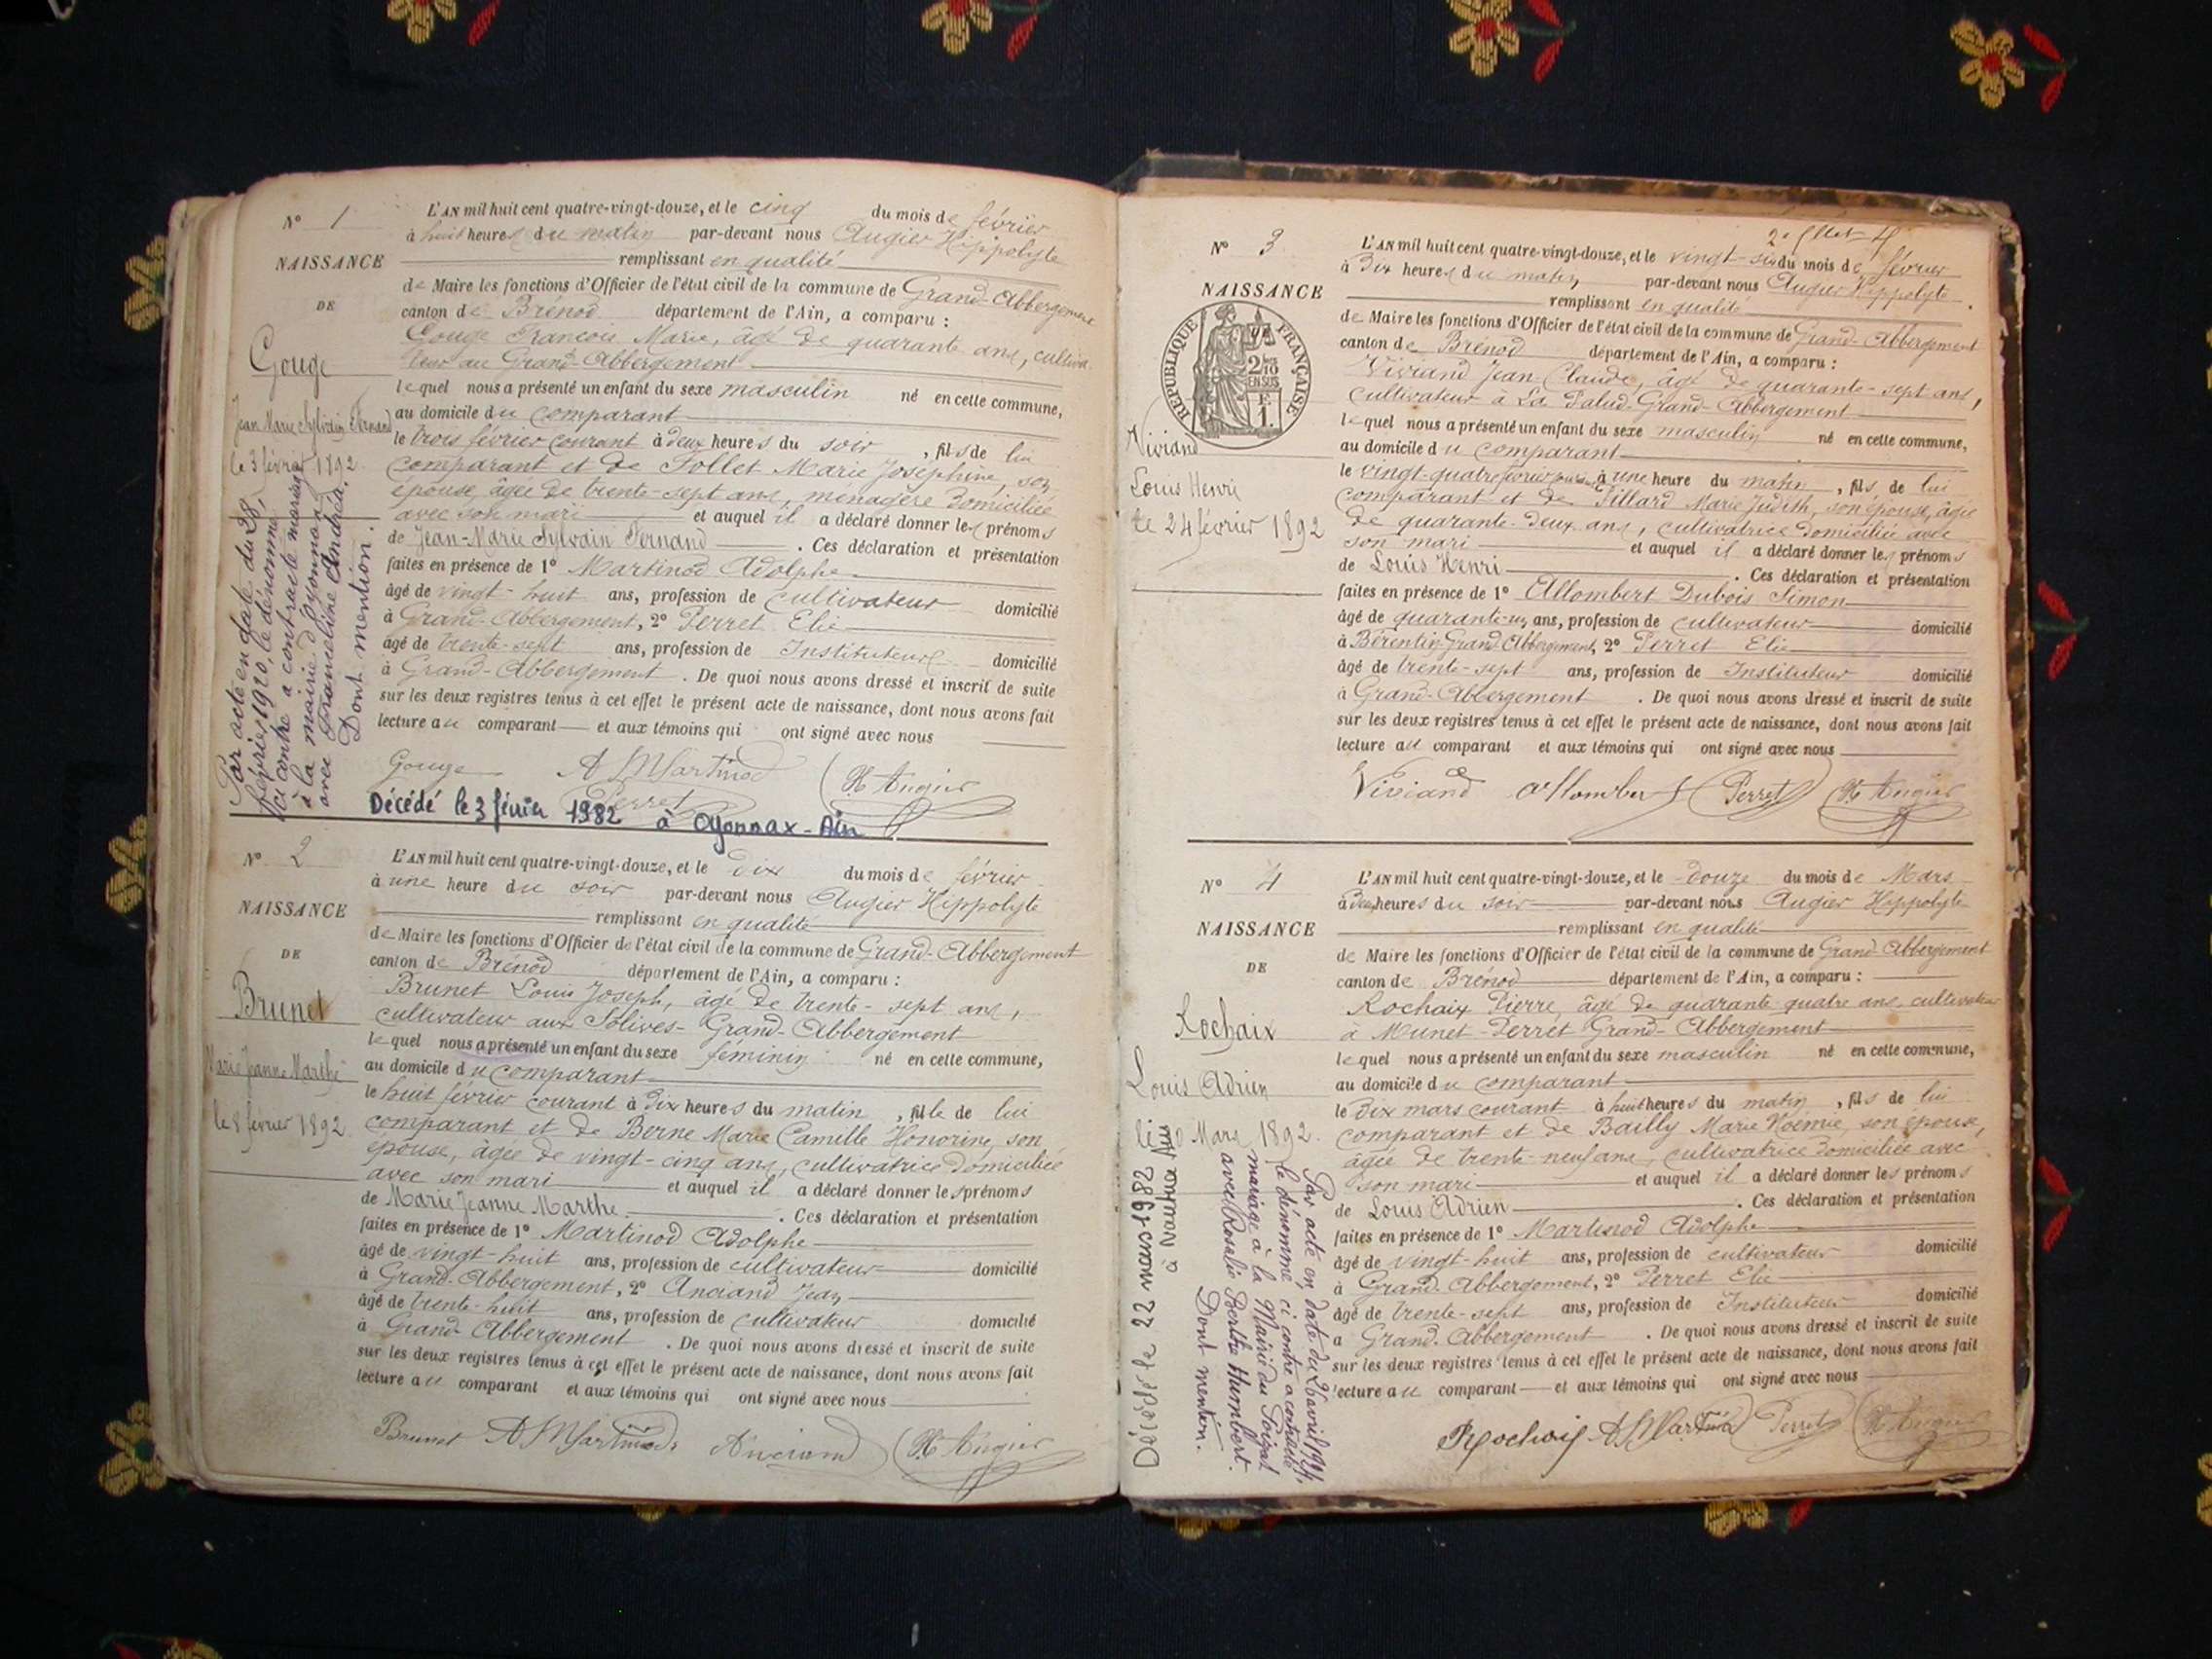 N° 1
NAISSANCE
DE
Gouge
Jean Marie Sylvain Fernand
le 3 février 1892.
Par acte en date du 28
février 1920, le dénommé
ci contre a contracté mariage
à la mairie d'Oyonnax
avec Franceline Andréa.
Dont mention.
L'AN mil huit cent quatre-vingt-douze, et le cinq du mois de février
à huit heures du matin par-devant nous Augier Hippolyte
remplissant en qualité
de Maire les fonctions d'Officier de l'état civil de la commune de Grand-Abbergement
canton de Brénod département de l'Ain, a comparu :
Gouge François Marie, âgé de quarante ans, cultiva-
teur au Grand-Abbergement
lequel nous a présenté un enfant du sexe masculin né en cette commune,
au domicile du comparant
le trois février courant à deux heures du soir, fils de lui
comparant et de Follet Marie Joséphine, son
épouse, âgée de trente-sept ans, ménagère domiciliée
avec son mari et auquel il a déclaré donner les prénoms
de Jean-Marie Sylvain Fernand. Ces déclaration et présentation
faites en présence de 1° Martinod Adolphe
âgé de vingt-huit ans, profession de cultivateur domicilié
à Grand-Abbergement, 2° Perret Elie
âgé de trente-sept ans, profession de Instituteur domicilié
à Grand-Abbergement. De quoi nous avons dressé et inscrit de suite
sur les deux registres tenus à cet effet le présent acte de naissance, dont nous avons fait
lecture au comparant et aux témoins qui ont signé avec nous
Gouge A Martinod H Augier
Perret
Décédé le 3 février 1982 à Oyonnax-Ain
N° 2
NAISSANCE
DE
Brunet
Marie Jeanne Marthe
le 8 février 1892
L'AN mil huit cent quatre-vingt-douze, et le dix du mois de février
à une heure du soir par-devant nous Augier Hippolyte
remplissant en qualité
de Maire les fonctions d'Officier de l'état civil de la commune de Grand-Abbergement
canton de Brénod département de l'Ain, a comparu :
Brunet Louis Joseph, âgé de trente-sept ans,
cultivateur aux Solives-Grand-Abbergement
lequel nous a présenté un enfant du sexe féminin né en cette commune,
au domicile du comparant
le huit février courant à dix heures du matin, fille de lui
comparant et de Berne Marie Camille Honorine, son
épouse, âgée de vingt-cinq ans, cultivatrice domiciliée
avec son mari et auquel il a déclaré donner les prénoms
de Marie Jeanne Marthe. Ces déclaration et présentation
faites en présence de 1° Martinod Adolphe
âgé de vingt-huit ans, profession de cultivateur domicilié
à Grand-Abbergement, 2° Anciand Jean
âgé de trente-huit ans, profession de cultivateur domicilié
à Grand-Abbergement. De quoi nous avons dressé et inscrit de suite
sur les deux registres tenus à cet effet le présent acte de naissance, dont nous avons fait
lecture au comparant et aux témoins qui ont signé avec nous
Brunet A Martinod Anciand H Augier
N° 3
NAISSANCE
RÉPUBLIQUE FRANÇAISE
2/10
EN SUS
F.
1.
Viviand
Louis Henri
le 24 février 1892
L'AN mil huit cent quatre-vingt-douze, et le vingt-six du mois de février
à dix heures du matin, par-devant nous Augier Hippolyte
remplissant en qualité
de Maire les fonctions d'Officier de l'état civil de la commune de Grand-Abbergement
canton de Brénod département de l'Ain, a comparu :
Viviand Jean-Claude, âgé de quarante-sept ans,
cultivateur à La Palud-Grand-Abbergement
lequel nous a présenté un enfant du sexe masculin né en cette commune,
au domicile du comparant
le vingt-quatre février courant à une heure du matin, fils de lui
comparant et de Tillard Marie Judith, son épouse, âgée
de quarante-deux ans, cultivatrice domiciliée avec
son mari et auquel il a déclaré donner les prénoms
de Louis Henri. Ces déclaration et présentation
faites en présence de 1° Allombert Dubois Simon
âgé de quarante-un ans, profession de cultivateur domicilié
à Bérentin-Grand-Abbergement, 2° Perret Elie
âgé de trente-sept ans, profession de Instituteur domicilié
à Grand-Abbergement. De quoi nous avons dressé et inscrit de suite
sur les deux registres tenus à cet effet le présent acte de naissance, dont nous avons fait
lecture au comparant et aux témoins qui ont signé avec nous
Viviand Allombert Perret H Augier
N° 4
NAISSANCE
DE
Rochaix
Louis Adrien
le 10 Mars 1892.
Par acte en date du 26 avril 1914,
le dénommé ci contre a contracté
mariage à la Mairie du Poizat
avec Rosalie Berthe Humbert.
Dont mention.
Décédé le 22 mars 1982
à Nantua Ain
L'AN mil huit cent quatre-vingt-douze, et le douze du mois de Mars
à deux heures du soir par-devant nous Augier Hippolyte
remplissant en qualité
de Maire les fonctions d'Officier de l'état civil de la commune de Grand-Abbergement
canton de Brénod département de l'Ain, a comparu :
Rochaix Pierre, âgé de quarante quatre ans, cultivateur
à Munet-Perret Grand-Abbergement
lequel nous a présenté un enfant du sexe masculin né en cette commune,
au domicile du comparant
le dix mars courant à huit heures du matin, fils de lui
comparant et de Bailly Marie Noémie, son épouse,
âgée de trente-neuf ans, cultivatrice domiciliée avec
son mari et auquel il a déclaré donner les prénoms
de Louis Adrien. Ces déclaration et présentation
faites en présence de 1° Martinod Adolphe
âgé de vingt-huit ans, profession de cultivateur domicilié
à Grand-Abbergement, 2° Perret Elie
âgé de trente-sept ans, profession de Instituteur domicilié
à Grand-Abbergement. De quoi nous avons dressé et inscrit de suite
sur les deux registres tenus à cet effet le présent acte de naissance, dont nous avons fait
lecture au comparant et aux témoins qui ont signé avec nous
Rochaix A Martinod Perret H Augier